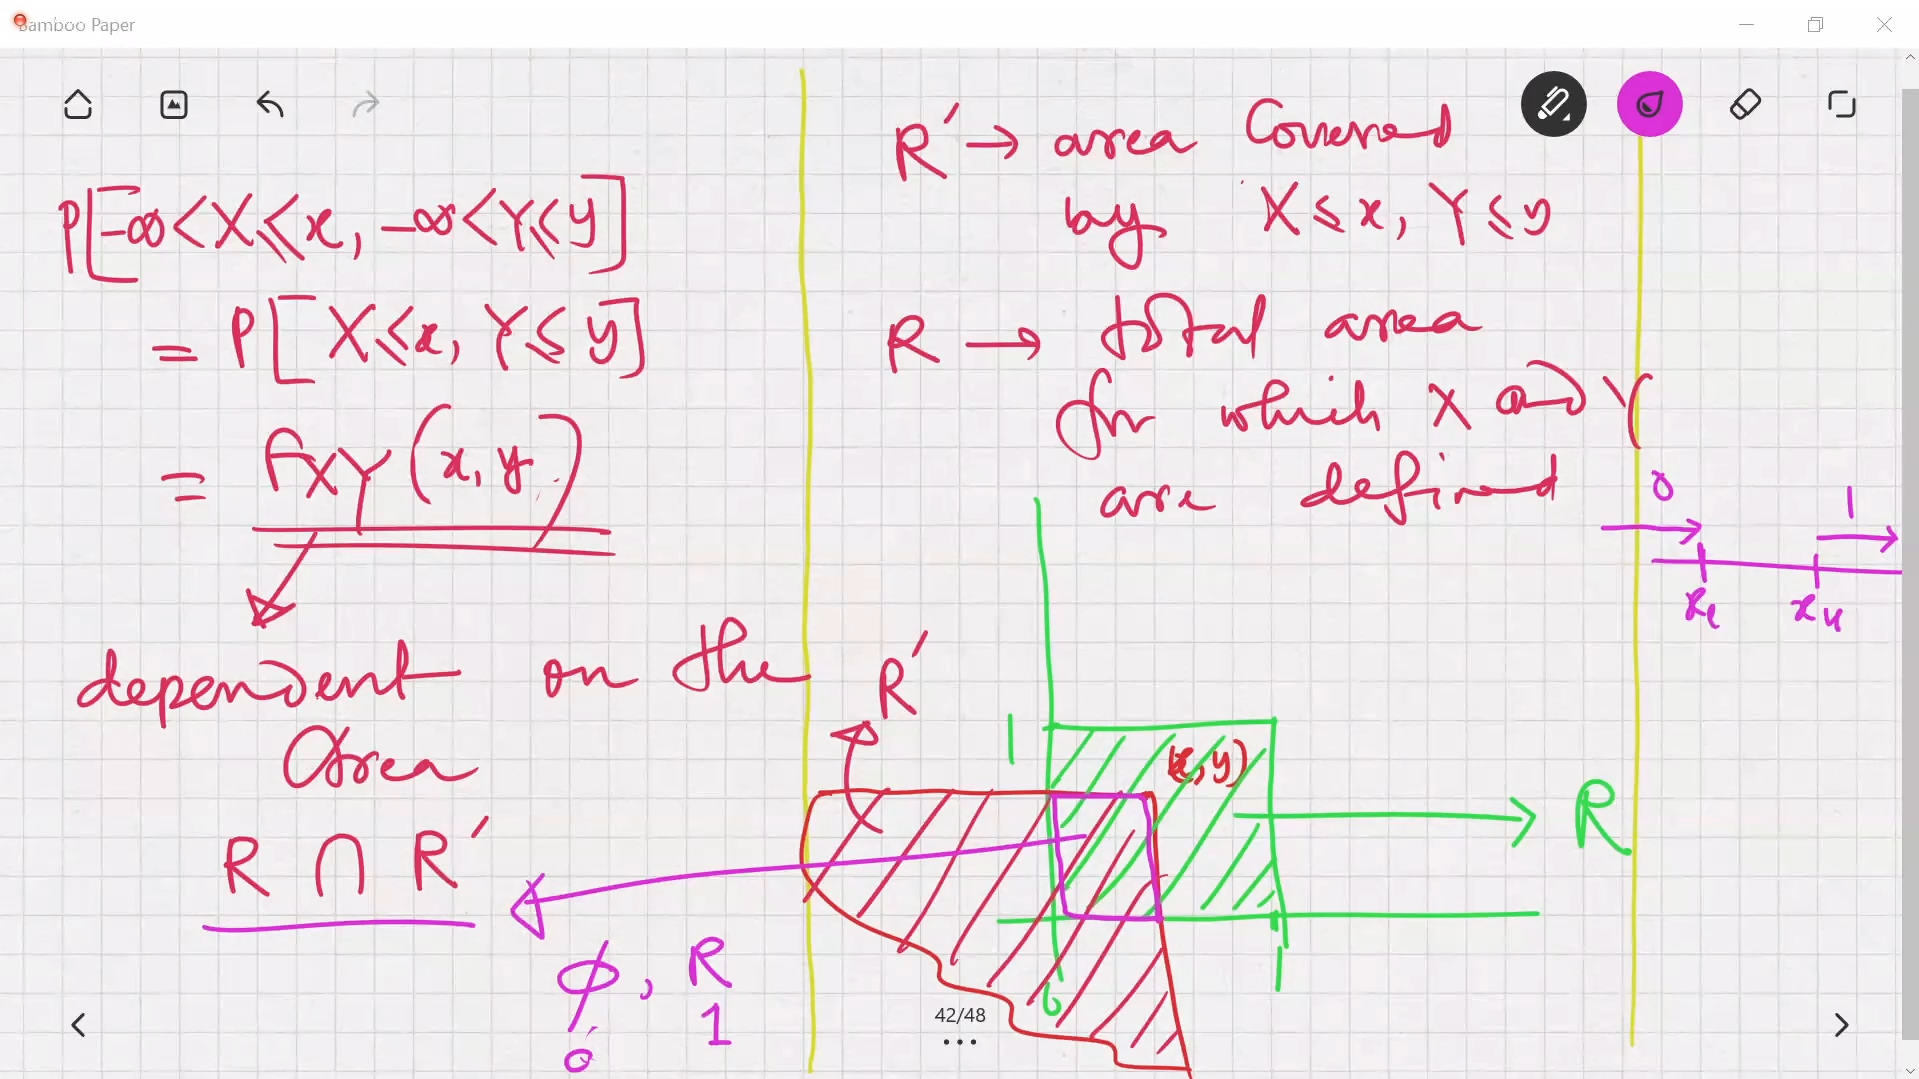 Bamboo Paper
P[-∞<X≤x, -∞<Y≤y]
= P[X≤x, Y≤y]
= FXY(x,y)
dependent on the
area
R ∩ R'
ϕ, R
0 1
R' → area Covered
by X≤x, Y≤y
R → total area
for which X and Y
are defined
0 1
xl xu
R'
1
(x,y)
R
0 1
42/48